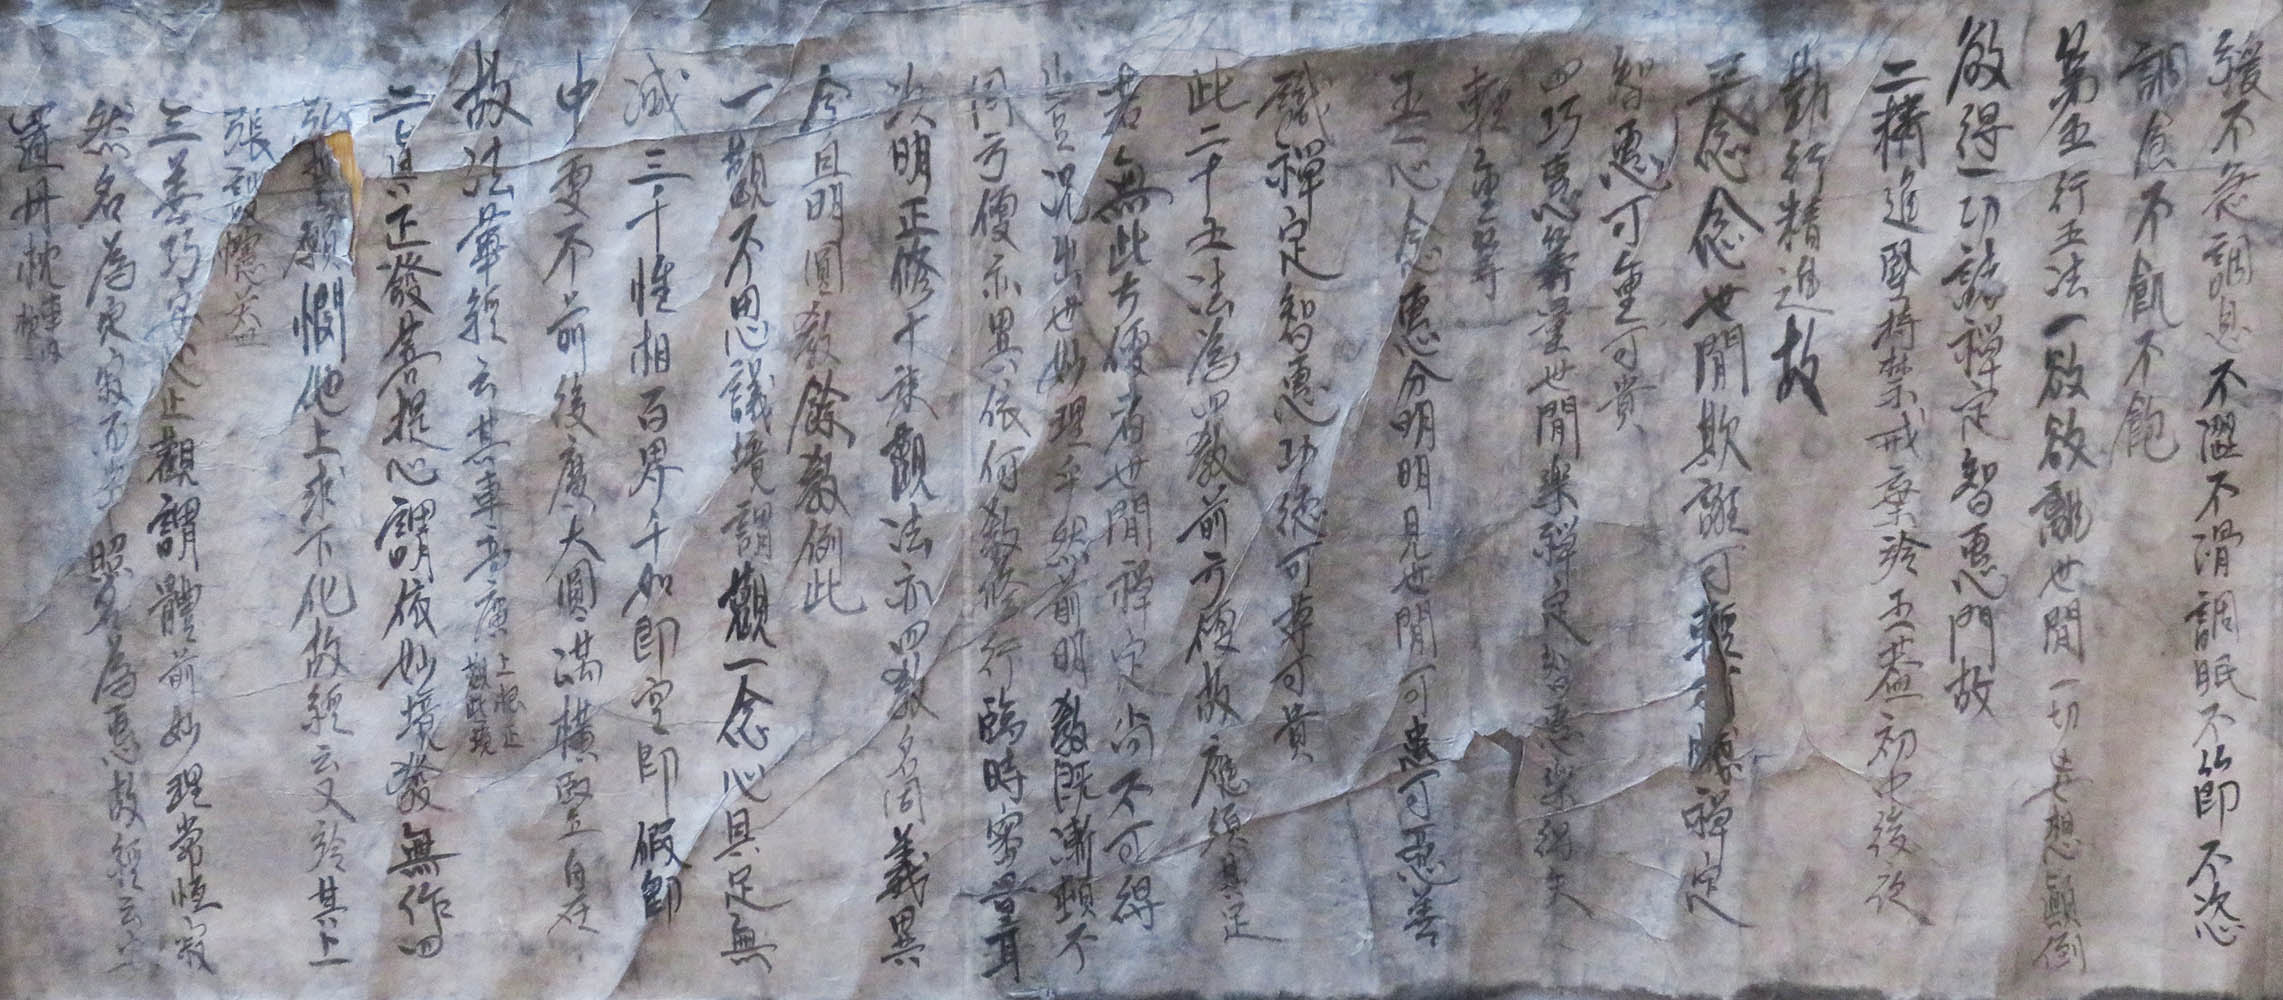 緩不急調息不澀不滑調眠不節不恣
調食不飢不飽
第五行五法一欲欲離世間一切妄想顛倒
欲得一切諸禪定智惠門故
二精進堅持禁戒棄於五蓋初中後夜
勤行精進故
三念念世間欺誑可輕可賤禪定
智惠可重可貴
四巧惠籌量世間樂禪定智惠樂得失
輕重等
五一心念惠分明明見世間可患可惡善
識禪定智惠功德可尊可貴
此二十五法為四教前方便故應須具足
若無此方便者世間禪定尚不可得
豈況出世妙理乎然前明教既漸頓不
同方便亦異依何教修行臨時審量耳
次明正修十乘觀法亦四教名同義異
今且明圓教餘教例此
一觀不思議境謂觀一念心具足無
減三千性相百界千如即空即假即
中更不前後廣大圓滿橫豎自在
故法華經云其車高廣上根正觀此境
二真正發菩提心謂依妙境發無作四
弘誓願憫他上求下化故經云又於其上
張設幰蓋
三善巧安心止觀謂體前妙理常恒寂
然名為定寂而常照名為惠故經云
置丹枕車內